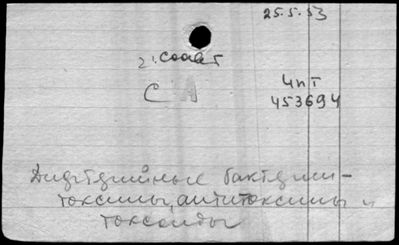 25.5.53
С
чпт
453694
Дифтерийные бактерии-
токсины, антитоксины и
токсоиды